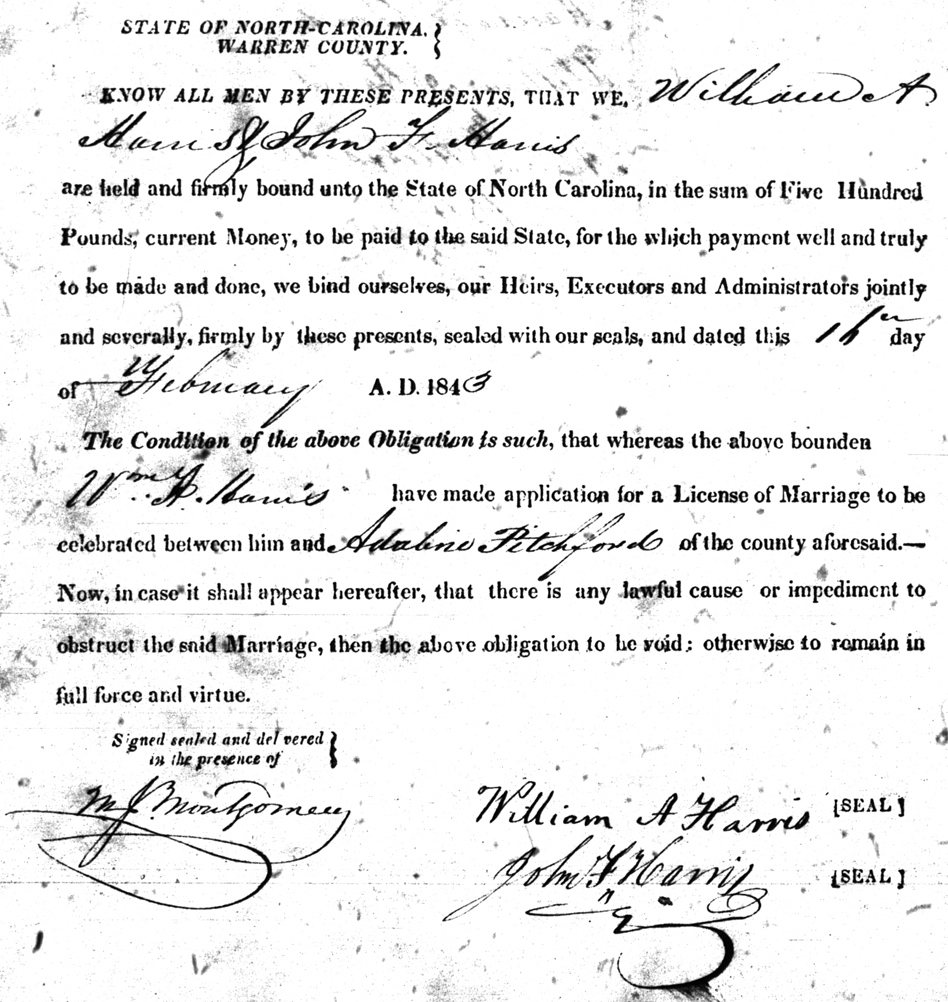 STATE OF NORTH-CAROLINA.
WARREN COUNTY.
KNOW ALL MEN BY THESE PRESENTS, THAT WE, William A
Harris & John F. Harris
are held and firmly bound unto the State of North Carolina, in the sum of Five Hundred
Pounds, current Money, to be paid to the said State, for the which payment well and truly
to be made and done, we bind ourselves, our Heirs, Executors and Administrators jointly
and severally, firmly by these presents, sealed with our seals, and dated this day
of February A. D. 1843
The Condition of the above Obligation is such, that whereas the above bounden
Wm. A. Harris have made application for a License of Marriage to be
celebrated between him and Adaline Pitchford of the county aforesaid.—
Now, in case it shall appear hereafter, that there is any lawful cause or impediment to
obstruct the said Marriage, then the above obligation to be void; otherwise to remain in
full force and virtue.
Signed sealed and delivered
in the presence of
M J. Montgomery
William A Harris [SEAL]
John F Harris [SEAL]